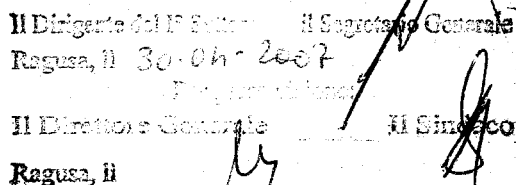 Il Dirigente del I° Settore Il Segretario Generale
Ragusa, il 30-04-2007
Il Direttore Generale Il Sindaco
Ragusa, il